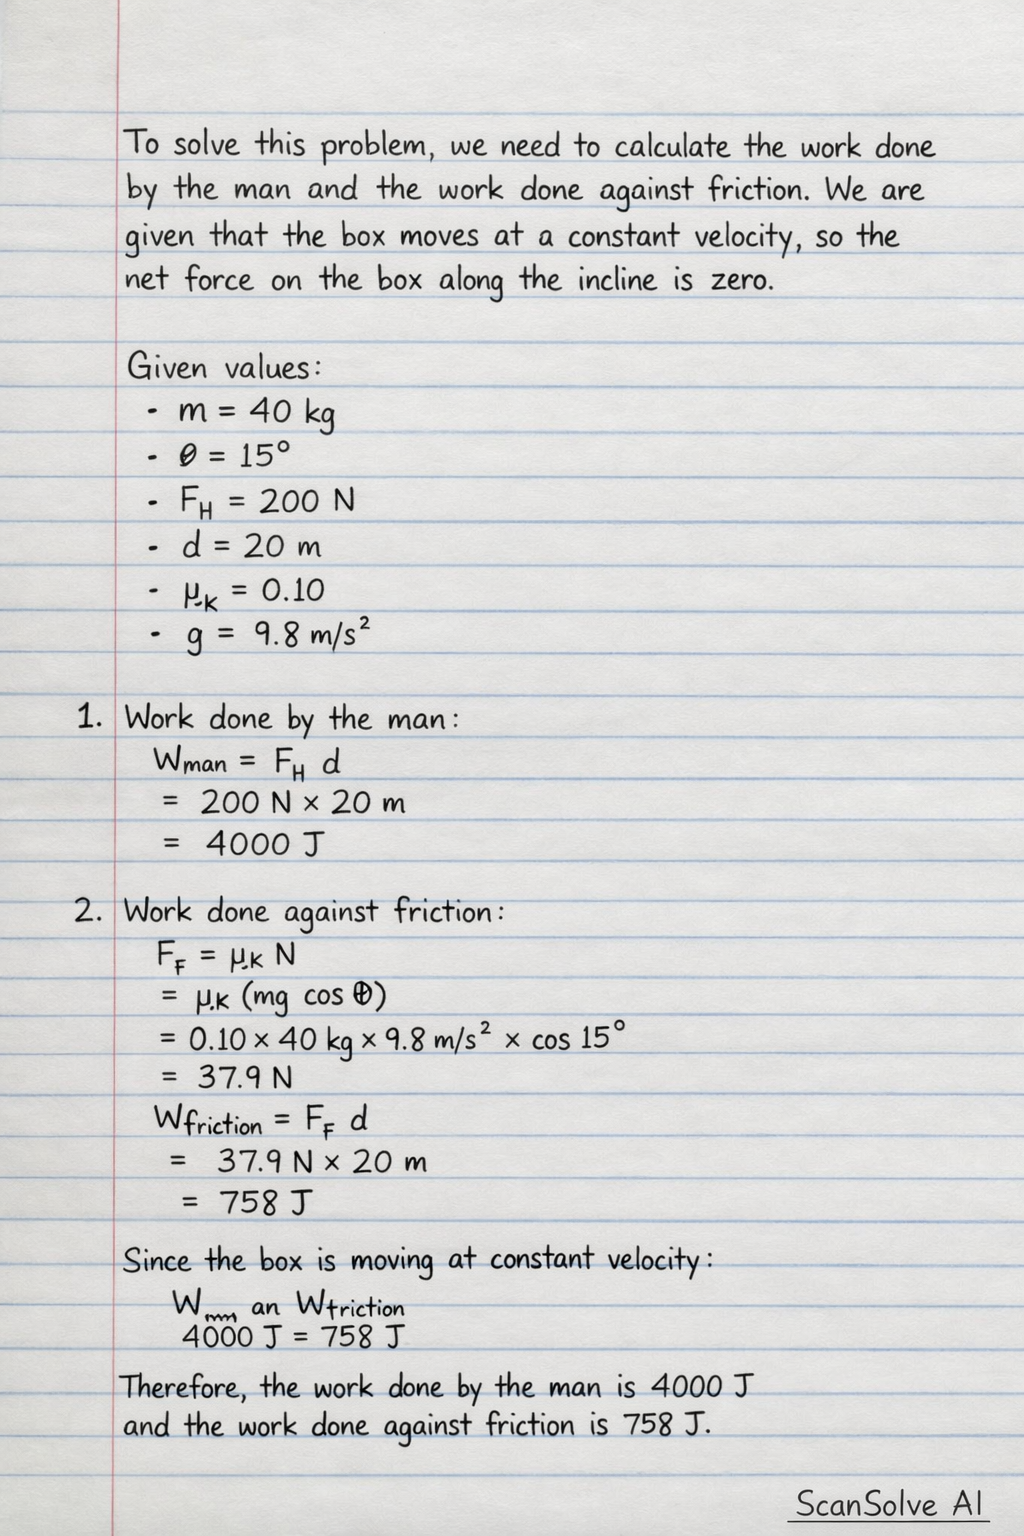 To solve this problem, we need to calculate the work done
by the man and the work done against friction. We are
given that the box moves at a constant velocity, so the
net force on the box along the incline is zero.
Given values:
- m = 40 kg
- θ = 15°
- F_H = 200 N
- d = 20 m
- μ_k = 0.10
- g = 9.8 m/s²
1. Work done by the man:
W_man = F_H d
= 200 N × 20 m
= 4000 J
2. Work done against friction:
F_F = μ_K N
= μ_K (mg cos θ)
= 0.10 × 40 kg × 9.8 m/s² × cos 15°
= 37.9 N
W_friction = F_F d
= 37.9 N × 20 m
= 758 J
Since the box is moving at constant velocity:
W an W_friction
4000 J = 758 J
Therefore, the work done by the man is 4000 J
and the work done against friction is 758 J.
ScanSolve AI